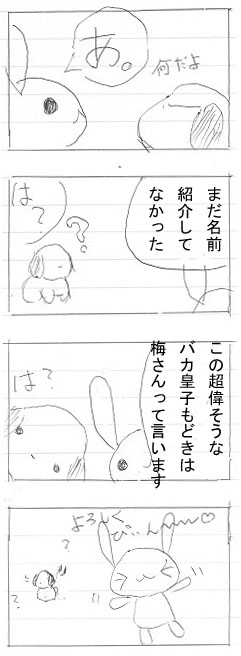 あ。
何だよ
まだ名前
紹介して
なかった
は?
?
この超偉そうな
バカ皇子もどきは
梅さんって言います
は?
よろしく
?
?